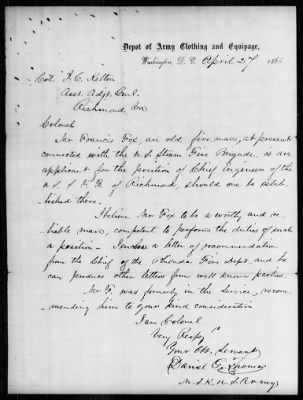 Depot of Army Clothing and Equipage,
Washington, D. C. April 27 186
Col. J. C. Kelton
Asst. Adjt. Genl.
Richmond Va
Colonel
Mr Francis Fox, an old fireman, at present
connected with the U.S. Steam Fire Brigade, is an
applicant for the position of Chief Engineer of the
U.S. F. D. of Richmond, should one be estab-
lished there.
I believe Mr Fox to be a worthy and re-
liable man, competent to perform the duties of such
a position - I enclose a letter of recommendation
from the Chief of the Philada Fire Dept and he
can produce other letters from well known parties.
Mr F. was formerly in the service, recom-
mending him to your kind consideration
I am Colonel
Very Respy
Your Obt. Servant
Daniel G. Thomas
M.S.K. U.S. Army